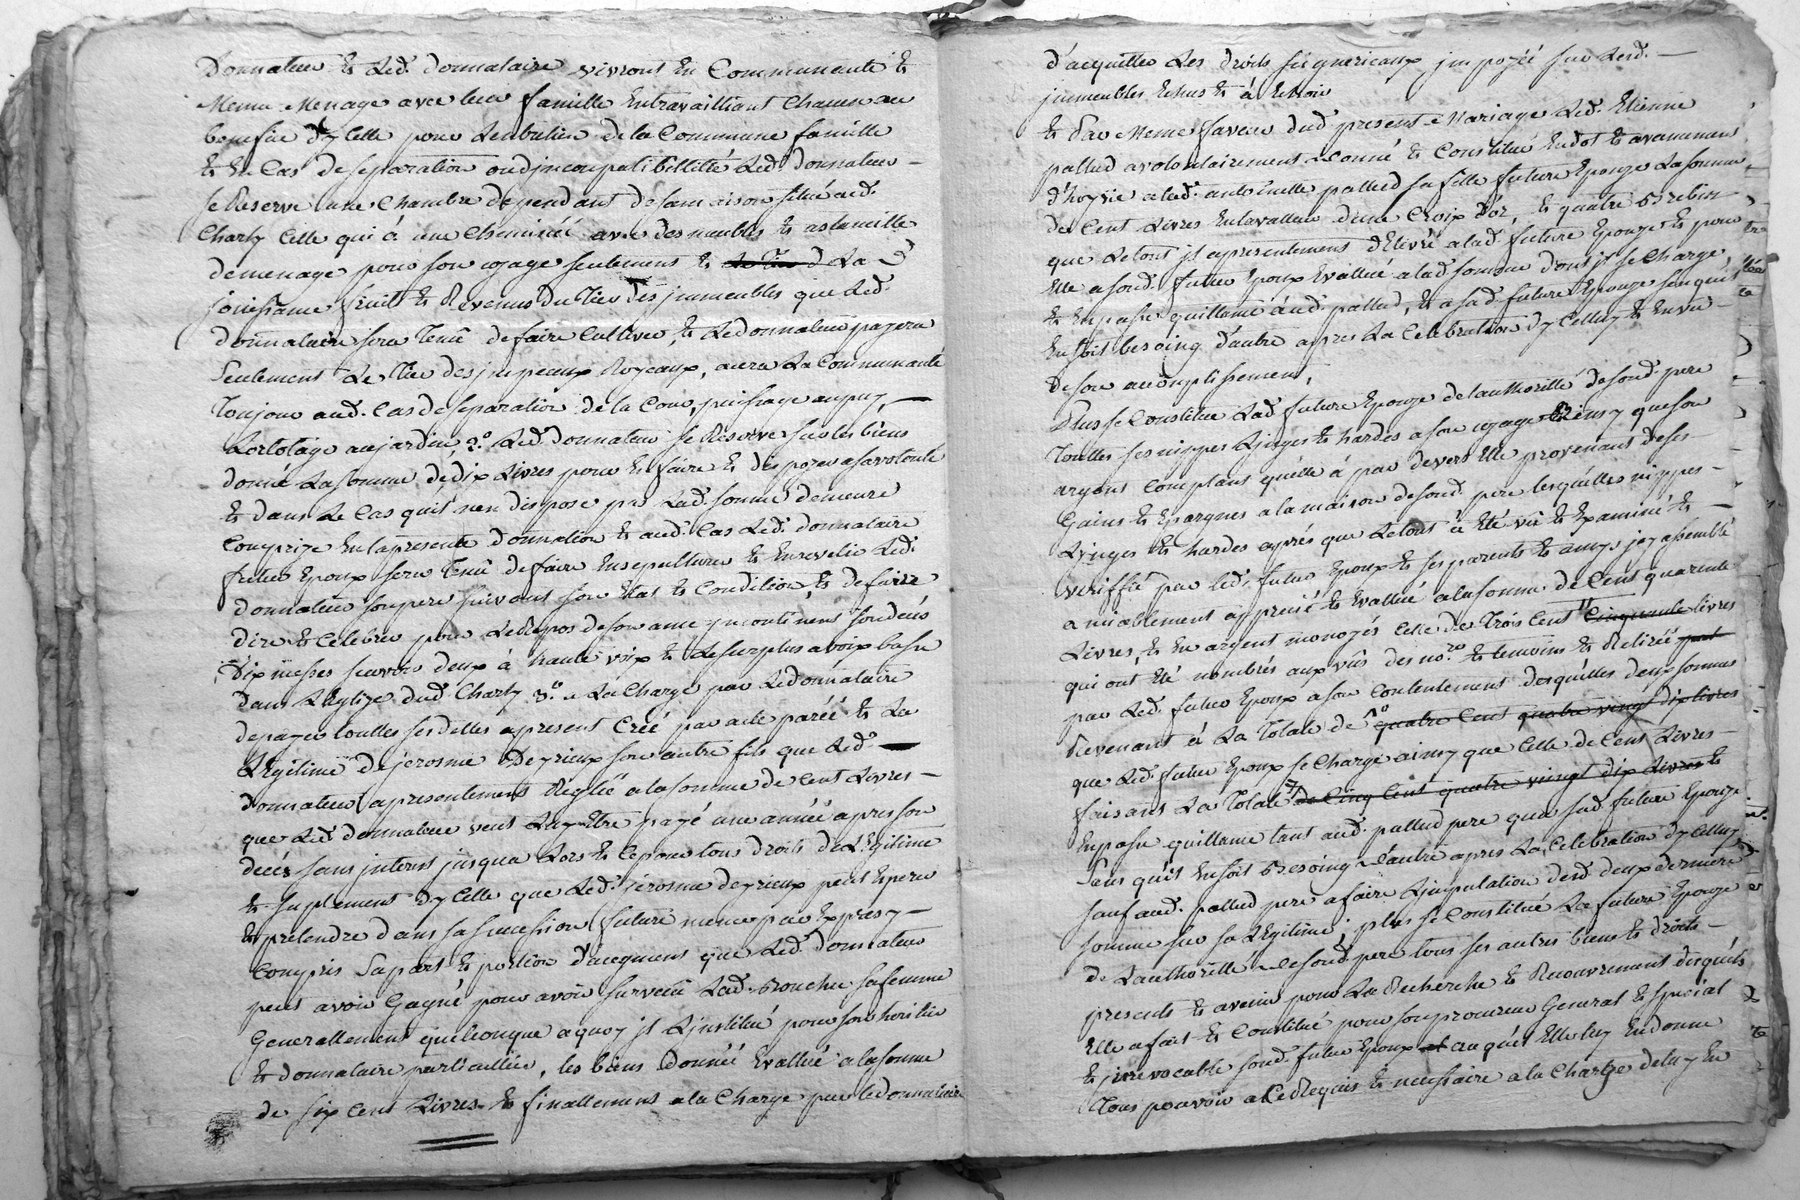 Donnateur & led. donnataire vivront en communauté &
meme menage avec leur famille en travaillant chacun au
benefice dy celle pour lentretien de la commune famille
& en cas de separation ou dincompatibillitté led. donnateur
se reserve une chambre dependant de sa maison situé aud.
Charly celle qui á une cheminéé avec des meubles & astancille
demenage pour son usage seulement & la
jouissance fruits & revenus du tier des jmmeubles que led.
donnataire sera tenû de faire cultiver, & led. donnateur payera
seulement le tier des jmpeaux royeaux, aura la communauté
toujour aud. cas de separation de la cour, puisage au puy,
Lortolage au jardin, 2.º led. donnateur se reserve sur les biens
donné la somme de dix livres pour en faire & disposer a sa volonté
& dans le cas quil nen dispose pas lad. somme demeure
comprize en la presente donnation & aud. cas led. donnataire
futur epoux sera tenû de faire ensepulturer & ensevelir led.
donnateur son pere suivant son etat & condition, & de faire
dire & celebrer pour le repos de son ame jncontinent son decés
dix messes scavoir deux á haute voix & le surplus a voix basse
dans leglize dud. Charly 3.º a la charge par led. donnataire
de payer touttes ses dettes apresent créé par acte paréé & la
legitime de jerosme Deyrieux son autre fils que led.
donnateur a presentement reglée a la somme de cent livres
que led. donnateur veut luy etre payé une année apres son
decés sans jnterest jusqua lors & ce pour tous droits de legitime
& suplement dy celle que led. jerosme deyrieux peut esperer
& pretendre dans sa succession future meme par expres y
compris sa part & portion daugment que led. donnateur
peut avoir gagné pour avoir survecû lad. Brouchu sa femme
generallement quelconque a quoy jl linstitué pour son heritier
& donnataire particulier, les biens donnéé evallué a la somme
de six cent livres & finallement a la charge par le donnataire
d'acquitter les droits seigneuriaux jmpozéé sur lesd.
jmmeubles echus & á echoir
& par meme faveur dud. present mariage led. Etienne
pallud a volontairement donné & constitué en dot & avancement
d'hoyrie a lad. antoinette pallud sa fille future epouze la somme
de cent livres en la valleur dune croix d'or, & quatre brebis
que le tout jl a presentement delivré a lad. future epouze & pour
elle a sond. futur epoux evallué a lad. somme dont jl se charge,
& en passe quittance aud. pallud, & a sad. future epouze sans quil
en soit besoing d'autre apres la celebration dy celluy & en vû
de son accomplissement,
Plus se constitue lad. future epouze de lauthoritté de sond. pere
touttes ses nippes linges & hardes a son usage ainsy que son
argent comptant quelle á par devers elle provenant de ses
gains & epargnes a la maison de sond. pere lesquelles nippes
linges & hardes aprés que le tout á eté vû & examiné &
veriffié par led. futur epoux & ses parents & amys jcy assemblé
amiablement apprecié & evallué a la somme de cent quarente
livres, & en argent monoyés celle de trois cent cinquante livres
qui ont eté nombrés aux vûs des no.res & temoins & retirée
par led. futur epoux a son contentement desquelles deux sommes
revenant á la totale de quatre cent quatre vingt dix livres
que led. futur epoux se charge ainsy que celle de cent livres
faisant la totale de cinq cent quatre vingt dix livres &
en passe quittance tant aud. pallud pere que sad. future epouze
sans quil en soit besoing dautre apres la celebration dy celluy
sauf aud. pallud pere a faire limputation desd. deux derniere
somme sur sa legitime, plus se constitué la future epouze
de lauthoritté de sond. pere tous ses autres biens & droits
presents & avenir pour la recherche & recouvrement desquels
elle a fait & constitué pour son procureur general & special
& jrrevocable sond. futur epoux au quel elle luy en donne
tous pouvoir a ce requis & necessaire a la charge de luy en